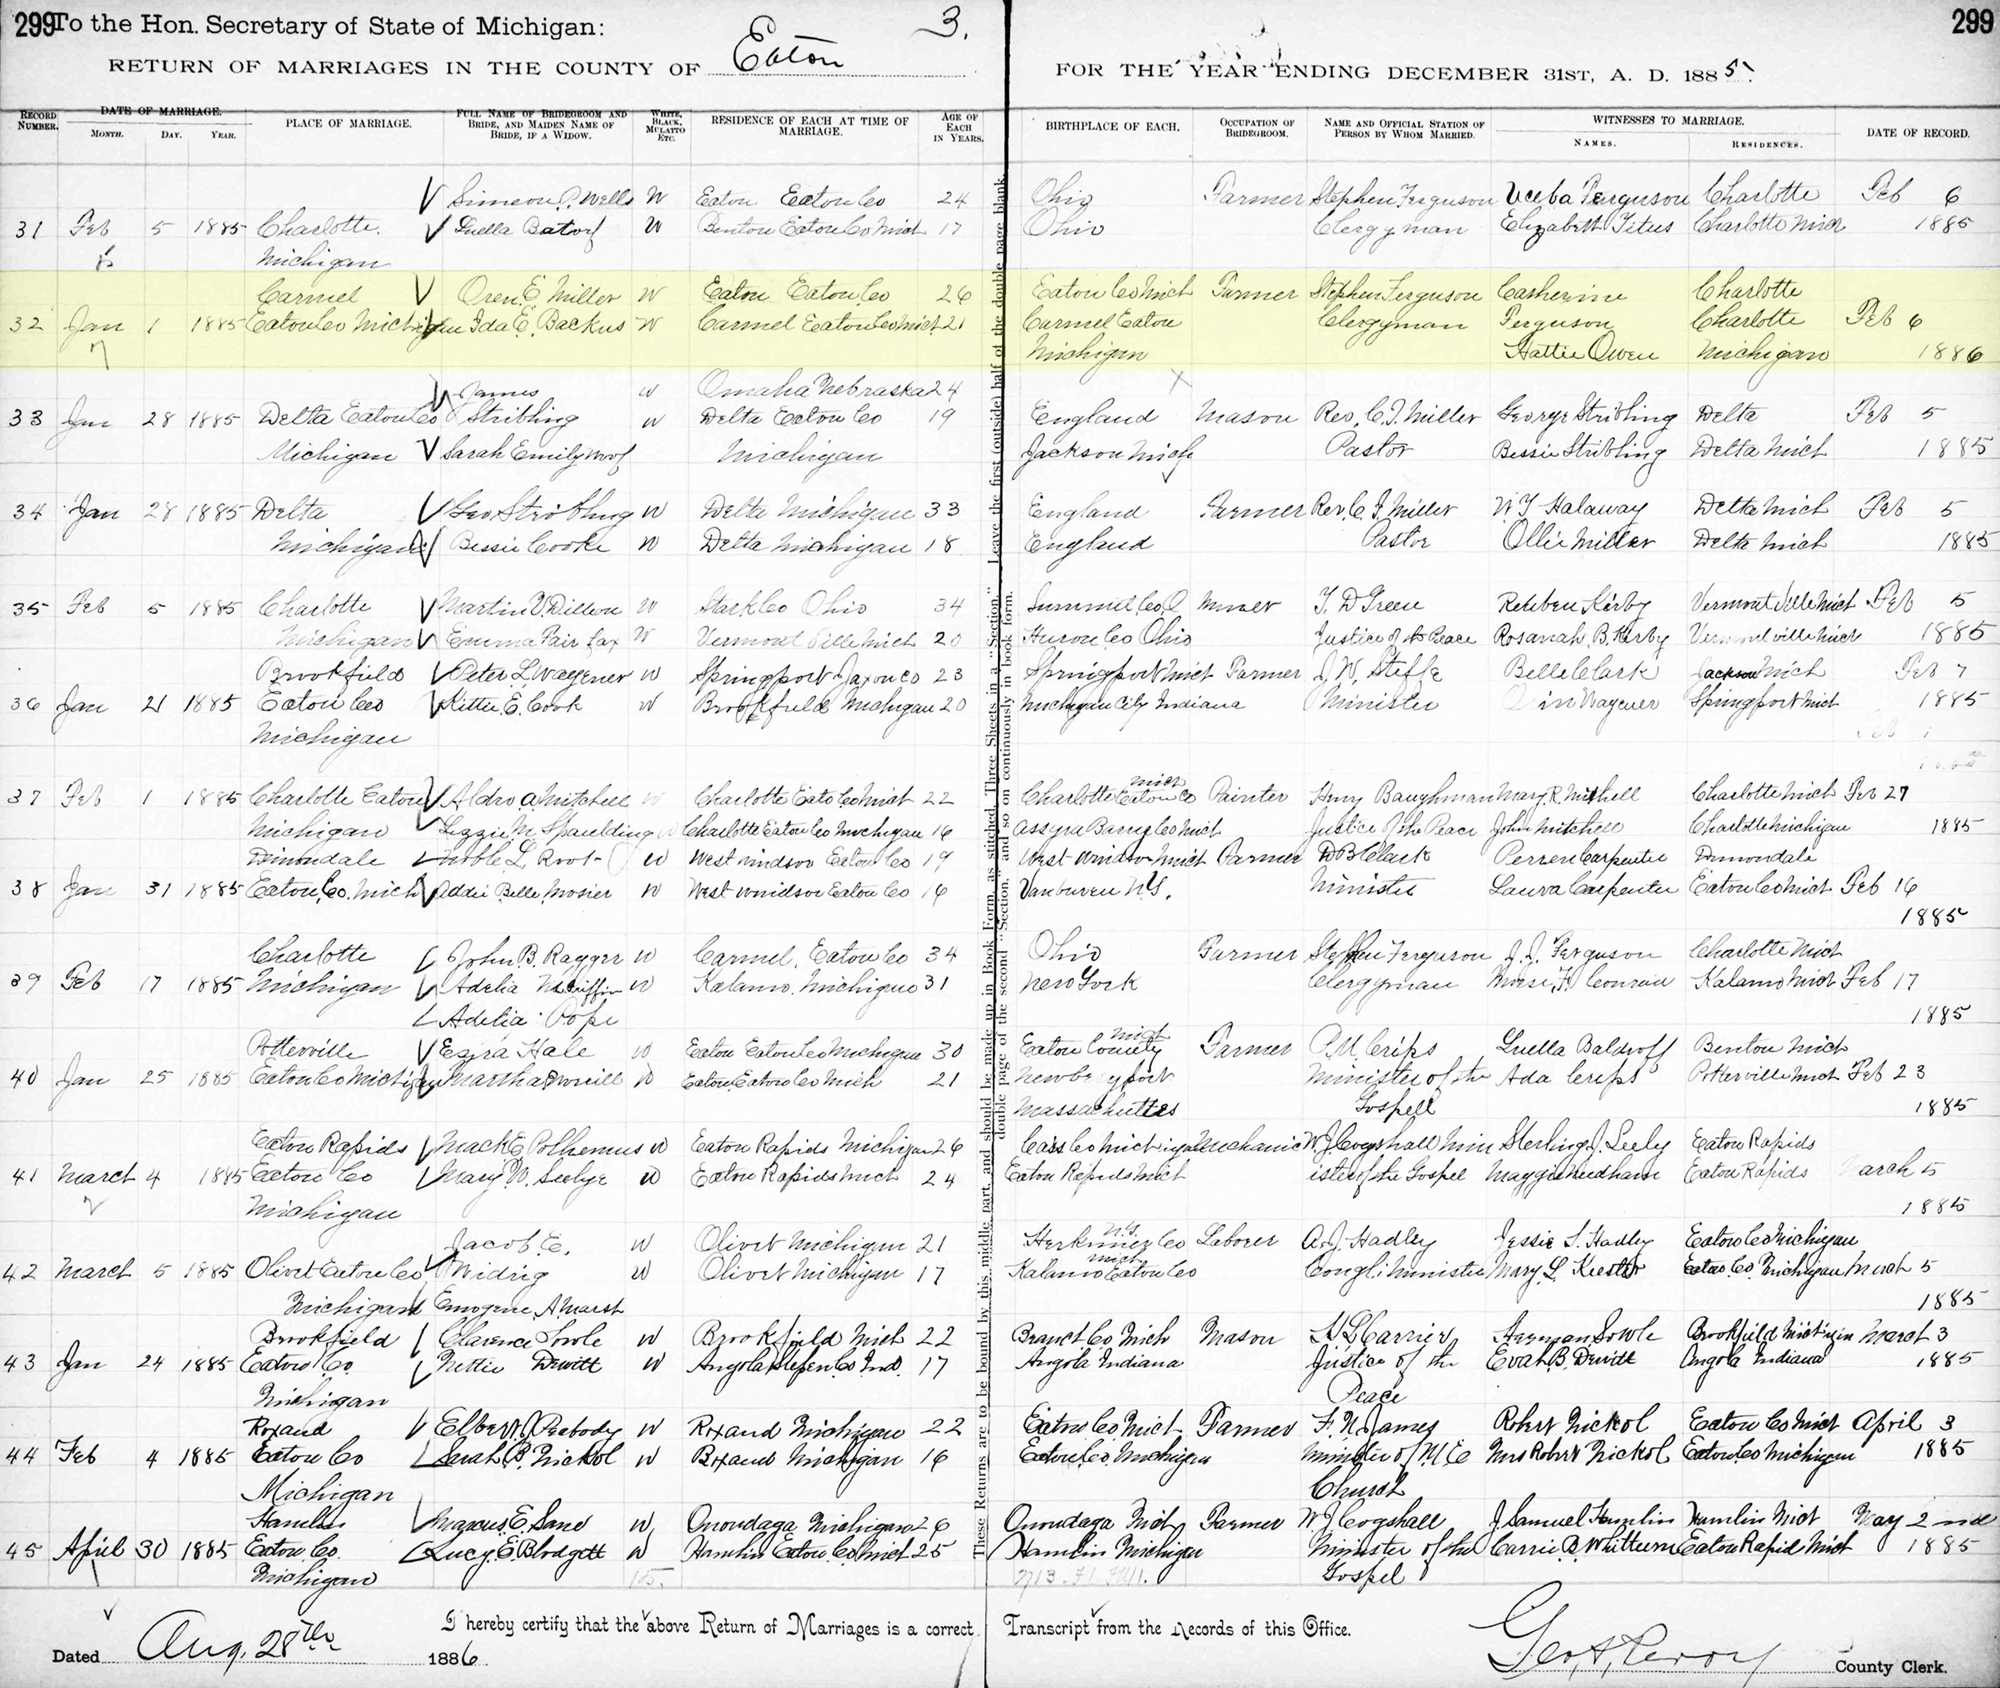 299 To the Hon. Secretary of State of Michigan: 3. 299
RETURN OF MARRIAGES IN THE COUNTY OF Eaton FOR THE YEAR ENDING DECEMBER 31ST, A. D. 1885.
RECORD NUMBER. DATE OF MARRIAGE. MONTH. DAY. YEAR. PLACE OF MARRIAGE. FULL NAME OF BRIDEGROOM AND BRIDE, AND MAIDEN NAME OF BRIDE, IF A WIDOW. WHITE, BLACK, MULATTO ETC. RESIDENCE OF EACH AT TIME OF MARRIAGE. AGE OF EACH IN YEARS. BIRTHPLACE OF EACH. OCCUPATION OF BRIDEGROOM. NAME AND OFFICIAL STATION OF PERSON BY WHOM MARRIED. WITNESSES TO MARRIAGE. NAMES. RESIDENCES. DATE OF RECORD.
Simeon Wells W Eaton Eaton Co 24 Ohio Farmer Stephen Ferguson Ferguson Charlotte Feb 6
31 Feb 5 1885 Charlotte. Luella W Benton Eaton Co Mich 17 Ohio Clergyman Elizabeth Titus Charlotte Mich 1885
Michigan
Carmel Oren E. Miller W Eaton Eaton Co 26 Eaton Co Mich Farmer Stephen Ferguson Catherine Charlotte
32 Jan 1 1885 Eaton Co Michigan Ida E. Backus W Carmel Eaton Co Mich 21 Carmel Eaton Clergyman Ferguson Charlotte Feb 6
Michigan Hattie Owen Michigan 1886
James W Omaha Nebraska 24
33 Jan 28 1885 Delta Eaton Co Stribling W Delta Eaton Co 19 England Mason Rev. C. I. Miller George Stribling Delta Feb 5
Michigan Sarah Emily Michigan Jackson Mich Pastor Bessie Stribling Delta Mich 1885
34 Jan 28 1885 Delta Geo Stribling W Delta Michigan 33 England Farmer Rev. C. I. Miller Halaway Delta Mich Feb 5
Michigan Bessie Cooke W Delta Michigan 18 England Pastor Ollie Miller Delta Mich 1885
35 Feb 5 1885 Charlotte Martin V. Dillon W Stark Co Ohio 34 Summit Co O Miner T. D Green Reuben Kirby Vermontville Mich Feb 5
Michigan Emma Fairfax W Vermontville Mich 20 Huron Co Ohio Justice of the Peace Rosanah B. Kirby Vermontville Mich 1885
Brookfield Peter L. Wagener W Springport Jaxon Co 23 Springport Mich Farmer J. W. Steffe Belle Clark Jackson Mich Feb 7
36 Jan 21 1885 Eaton Co Kittie E. Cook W Brookfield Michigan 20 Michigan City Indiana Minister Wagener Springport Mich 1885
Michigan
37 Feb 1 1885 Charlotte Eaton Aldro A Mitchell W Charlotte Eato Co Mich 22 Charlotte Eaton Co Mich Painter Henry Baughman Mary R. Mitchell Charlotte Mich Feb 27
Michigan Lizzie M. Spaulding W Charlotte Eaton Co Michigan 16 Justice of the Peace John Mitchell Charlotte Michigan 1885
Dimondale Noble L. Root W West Windsor Eaton Co 19 West Windsor Mich Farmer D B Clark Perren Carpenter Dimondale
38 Jan 31 1885 Eaton Co. Mich Addie Belle Mosier W West Windsor Eaton Co 16 Vanburen N.Y. Minister Laura Carpenter Eaton Co Mich Feb 16
1885
Charlotte John B. W Carmel, Eaton Co 34 Ohio Farmer Stephen Ferguson J. J. Ferguson Charlotte Mich
39 Feb 17 1885 Michigan Adelia Griffin W Kalamo, Michigan 31 New York Clergyman Conrad Kalamo Mich Feb 17
Adelia Pope 1885
Potterville Ezra Hale W Eaton Eaton Co Michigan 30 Eaton County Mich Farmer P. M. Crips Luella Baldroff Benton Mich
40 Jan 25 1885 Eaton Co Michigan Martha W Eaton Eaton Co Mich 21 Minister of the Ada Crips Potterville Mich Feb 23
Massachuttes Gospell 1885
Eaton Rapids Mack E Polhemus W Eaton Rapids Michigan 26 Cass Co Michigan Mechanic W. J. Cogshall Min Sterling J. Seely Eaton Rapids
41 March 4 1885 Eaton Co Mary W Eaton Rapids Mich 24 Eaton Rapids Mich ister of the Gospel Maggie Needham Eaton Rapids March 5
Michigan 1885
Jacob E. W Olivet Michigan 21 Herkimer Co N.Y. Laborer A. J. Hadley Jessie S. Hadley Eaton Co Michigan
42 March 5 1885 Olivet Eaton Co Widrig W Olivet Michigan 17 Kalamo Eaton Co Mich Congl. Minister Mary L Eaton Co. Michigan March 5
Michigan Emogene A. Marsh 1885
Brookfield Clarence Sowle W Brookfield Mich 22 Branch Co. Mich Mason Carrier Harmon Sowle Brookfield Michigan March 3
43 Jan 24 1885 Eaton Co. Nettie Dewitt W Angola Co. Ind. 17 Angola Indiana Justice of the B. Dewitt Angola Indiana 1885
Michigan Peace
Roxand Elbert J Peabody W Roxand Michigan 22 Eaton Co Mich Farmer F. N. James Robert Nickol Eaton Co Mich April 3
44 Feb 4 1885 Eaton Co Sarah B. Nickol W Roxand Michigan 16 Eaton Co Michigan Minister of M E Mrs Robert Nickol Eaton Co Michigan 1885
Michigan Church
Hamlin Marcus E. Sand W Onondaga Michigan 26 Onondaga Mich Farmer W. J. Cogshall J. Samuel Hamlin Hamlin Mich May 2nd
45 April 30 1885 Eaton Co. Lucy E. Blodgett W Hamlin Eaton Co Mich 25 Hamlin Michigan Minister of the Carrie B. Eaton Rapid Mich 1885
Michigan Gospel
These Returns are to be bound by this middle part, and should be made up in Book Form, as stitched. Three Sheets in a "Section." Leave the first (outside) half of the double page blank.
double page of the second "Section," and so on continuously in book form.
I hereby certify that the above Return of Marriages is a correct Transcript from the Records of this Office.
Dated Aug. 28th 1886 Geo. A. Perry County Clerk.